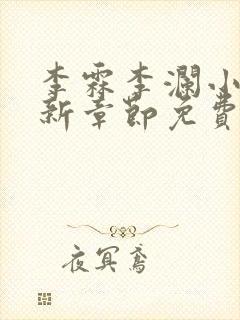 李霖李澜小
新章节免费
夜冥鸢